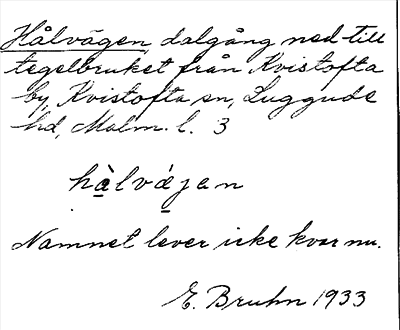 Hålvägen, dalgång ned till
tegelbruket från Kvistofta
by, Kvistofta sn, Luggude
hd, Malm. l. 3
hàlvǽjan
Namnet lever icke kvar nu.
E. Bruhn 1933